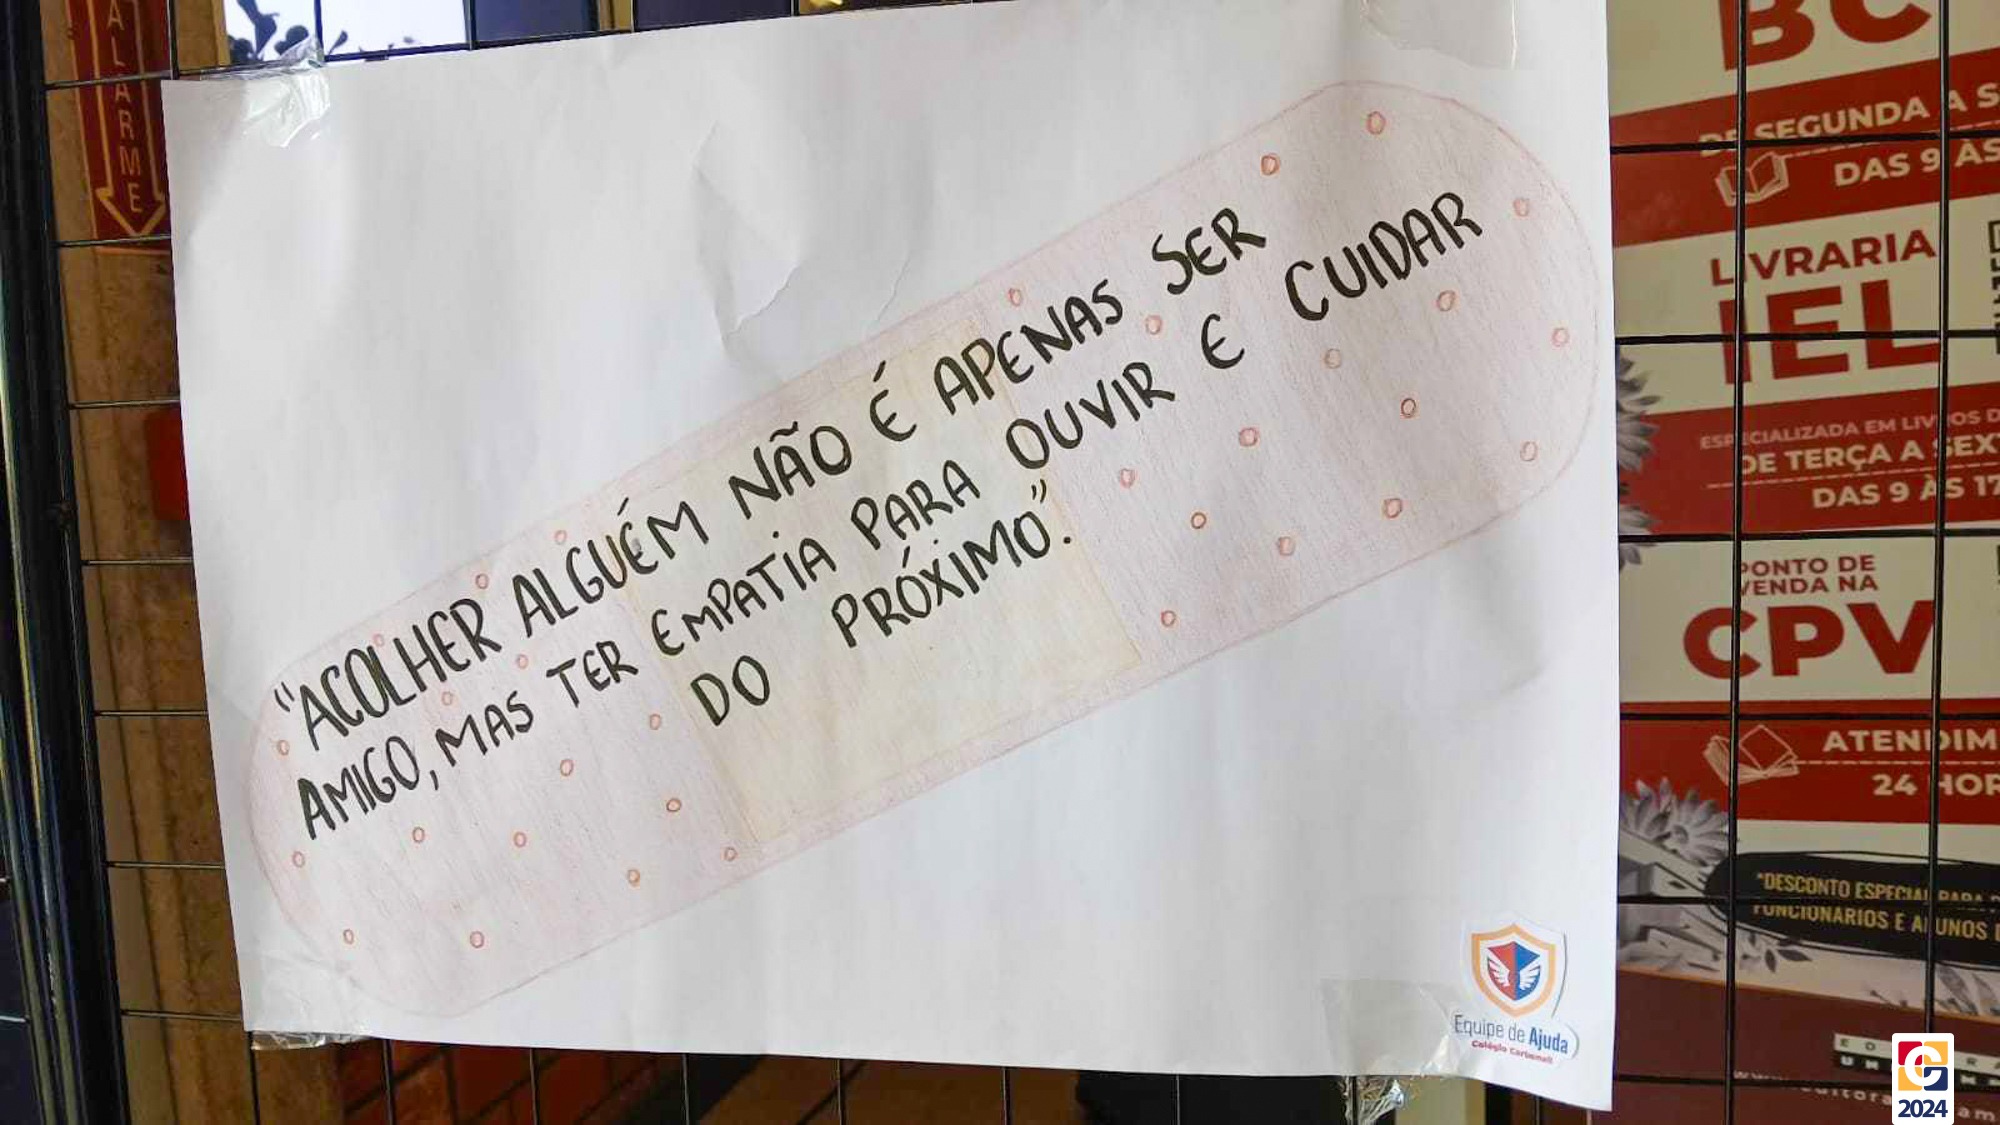 ALARME
"ACOLHER ALGUÉM NÃO É APENAS SER
AMIGO, MAS TER EMPATIA PARA OUVIR E CUIDAR
DO PRÓXIMO."
Equipe de Ajuda
Colégio Carbonell
BC
DE SEGUNDA A S
DAS 9 ÀS
LIVRARIA
IEL
ESPECIALIZADA EM LIVROS D
DE TERÇA A SEX
DAS 9 ÀS 17
PONTO DE
VENDA NA
CPV
ATENDIM
24 HOR
*DESCONTO ESPECIAL PARA
FUNCIONÁRIOS E ALUNOS
2024